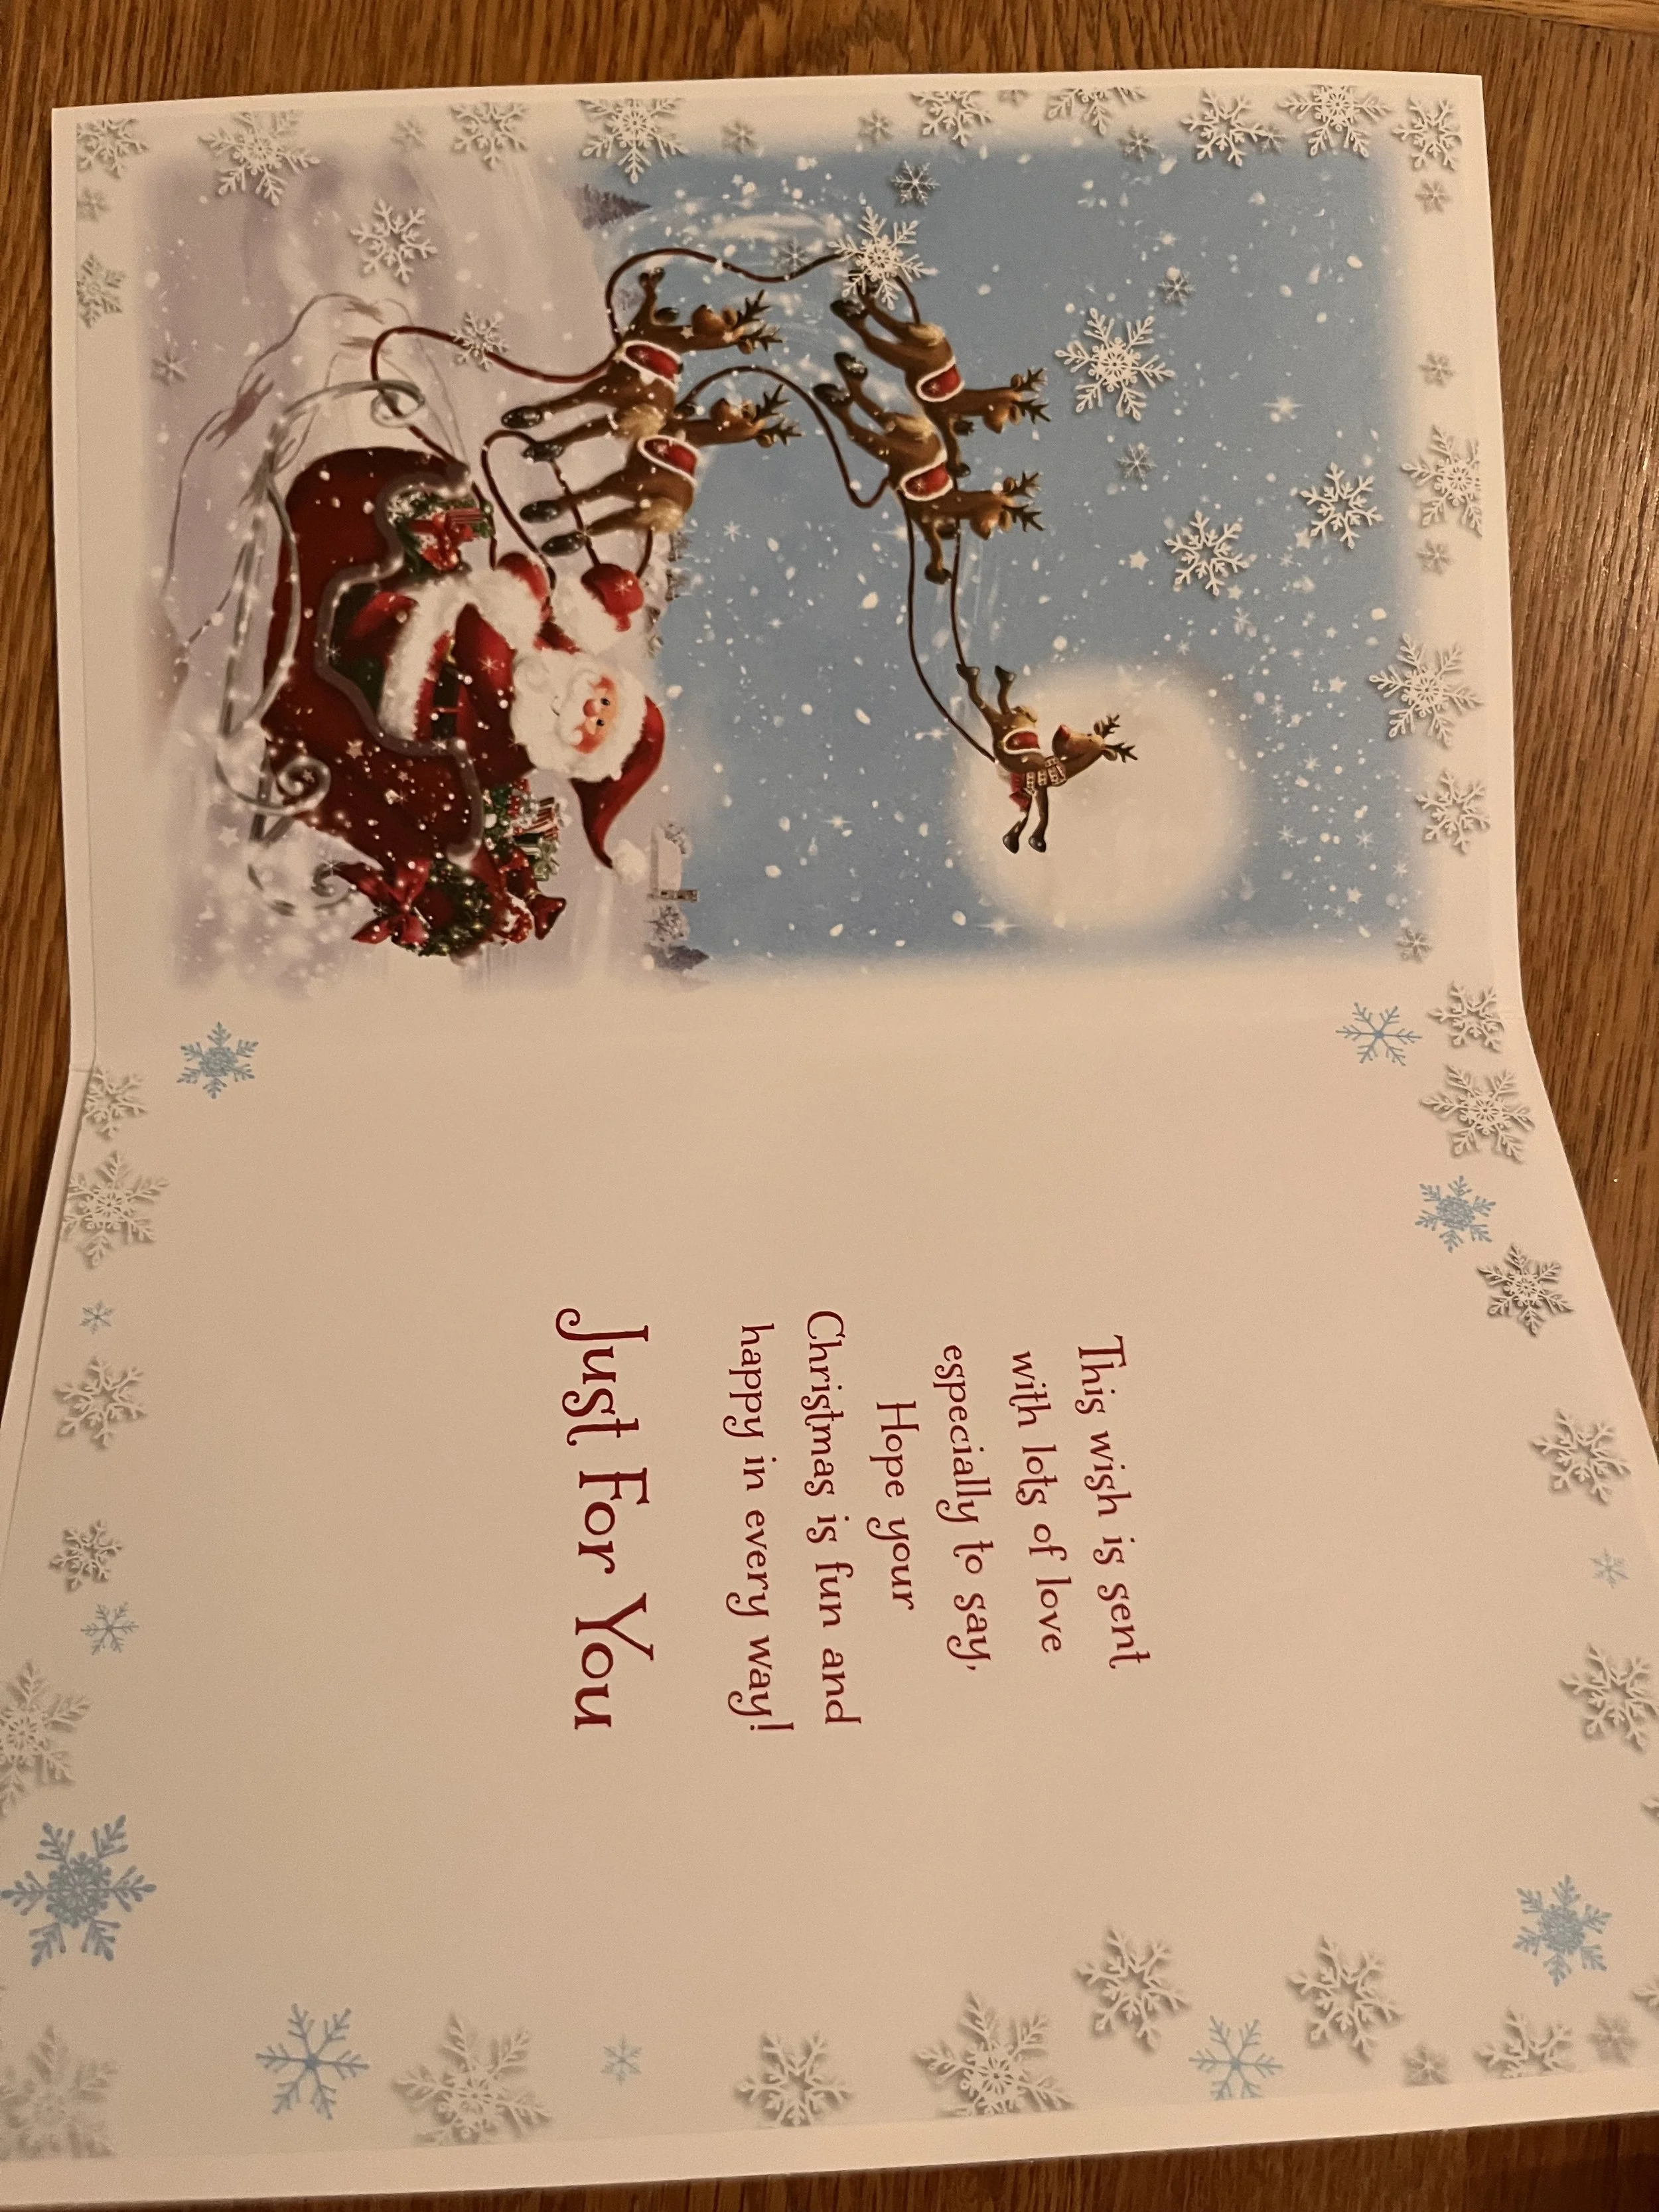 This wish is sent
with lots of love
especially to say,
Hope your
Christmas is fun and
happy in every way!
Just For You